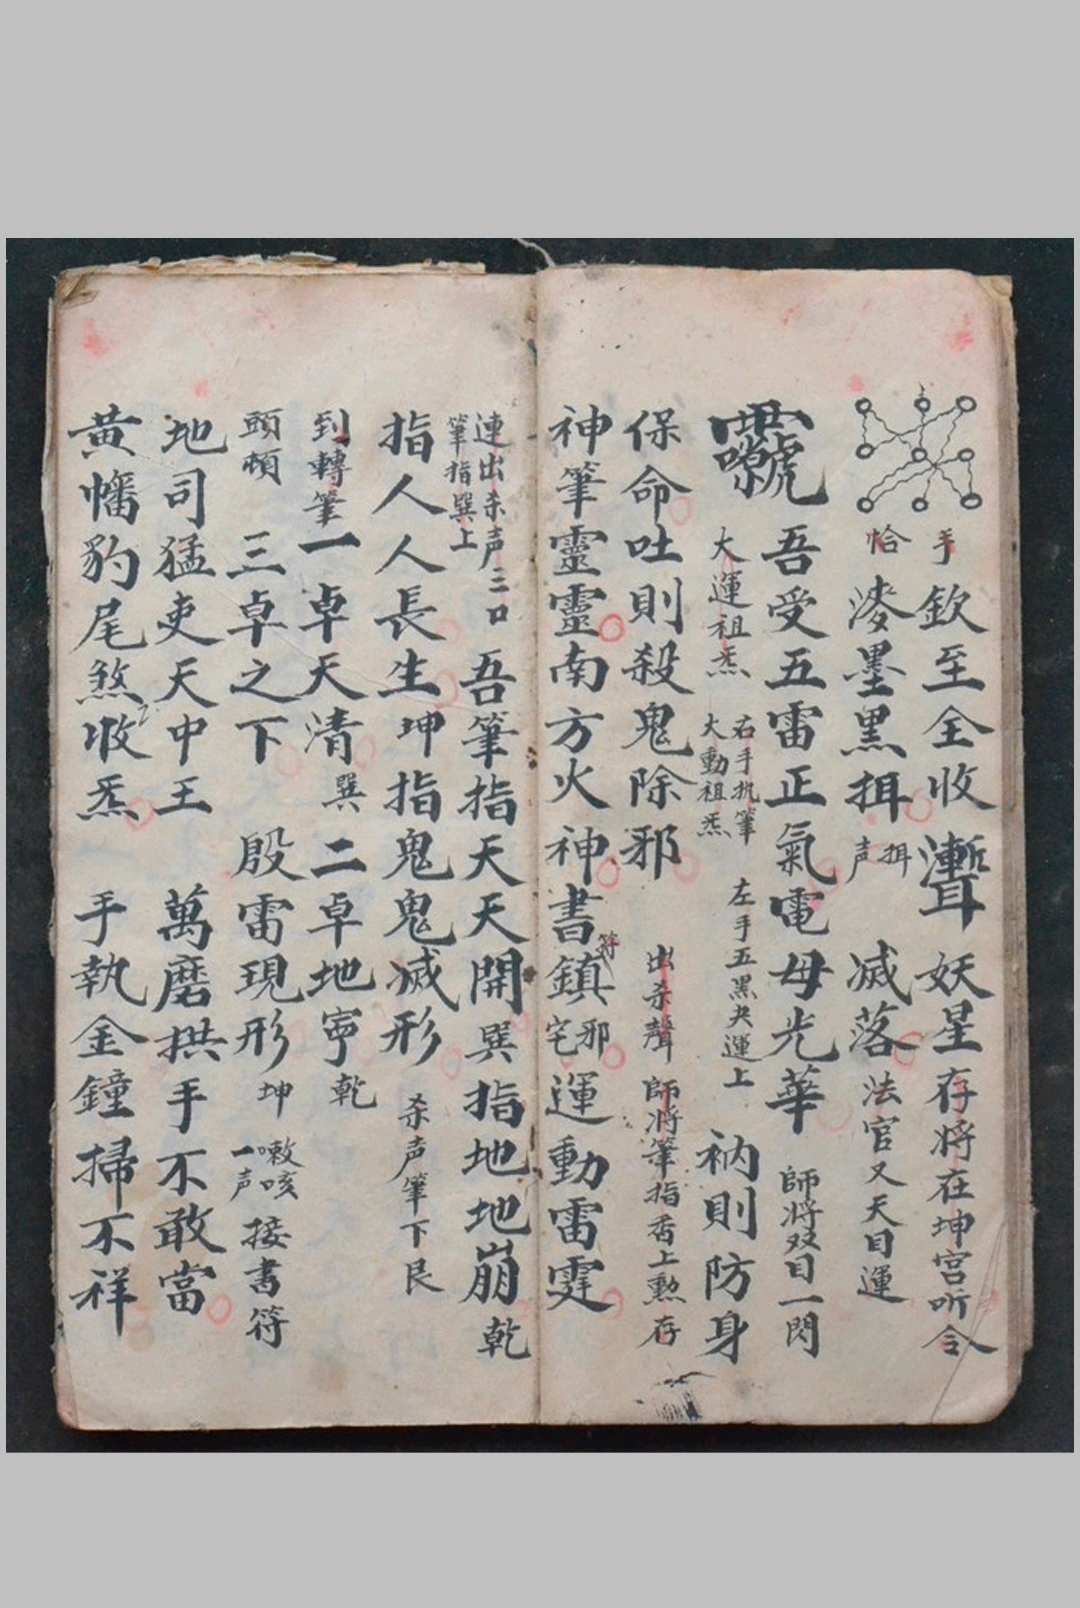 手 欽至全收 妖星存將在坤宫听令
恰 墨黑揖 揖声 滅落法官又天目運
吾受五雷正氣電母光華 師將双目一閃
大運祖炁 右手执筆 大動祖炁 左手五黑夬運上 衲則防身
保命吐則殺鬼除邪 出杀聲 師將筆指香上勲存
神筆靈靈南方火神書符鎮邪宅運動雷霆
連出杀声三口 筆指巽上 吾筆指天天開巽指地地崩乾
指人人長生坤指鬼鬼滅形 杀声筆下艮
到轉筆一卓天清巽二卓地寕乾
頭頓 三卓之下 殷雷現形坤 嗽咳一声 接書符
地司猛吏天中王 萬磨拱手不敢當
黄幡豹尾煞收炁 手執金鐘掃不祥